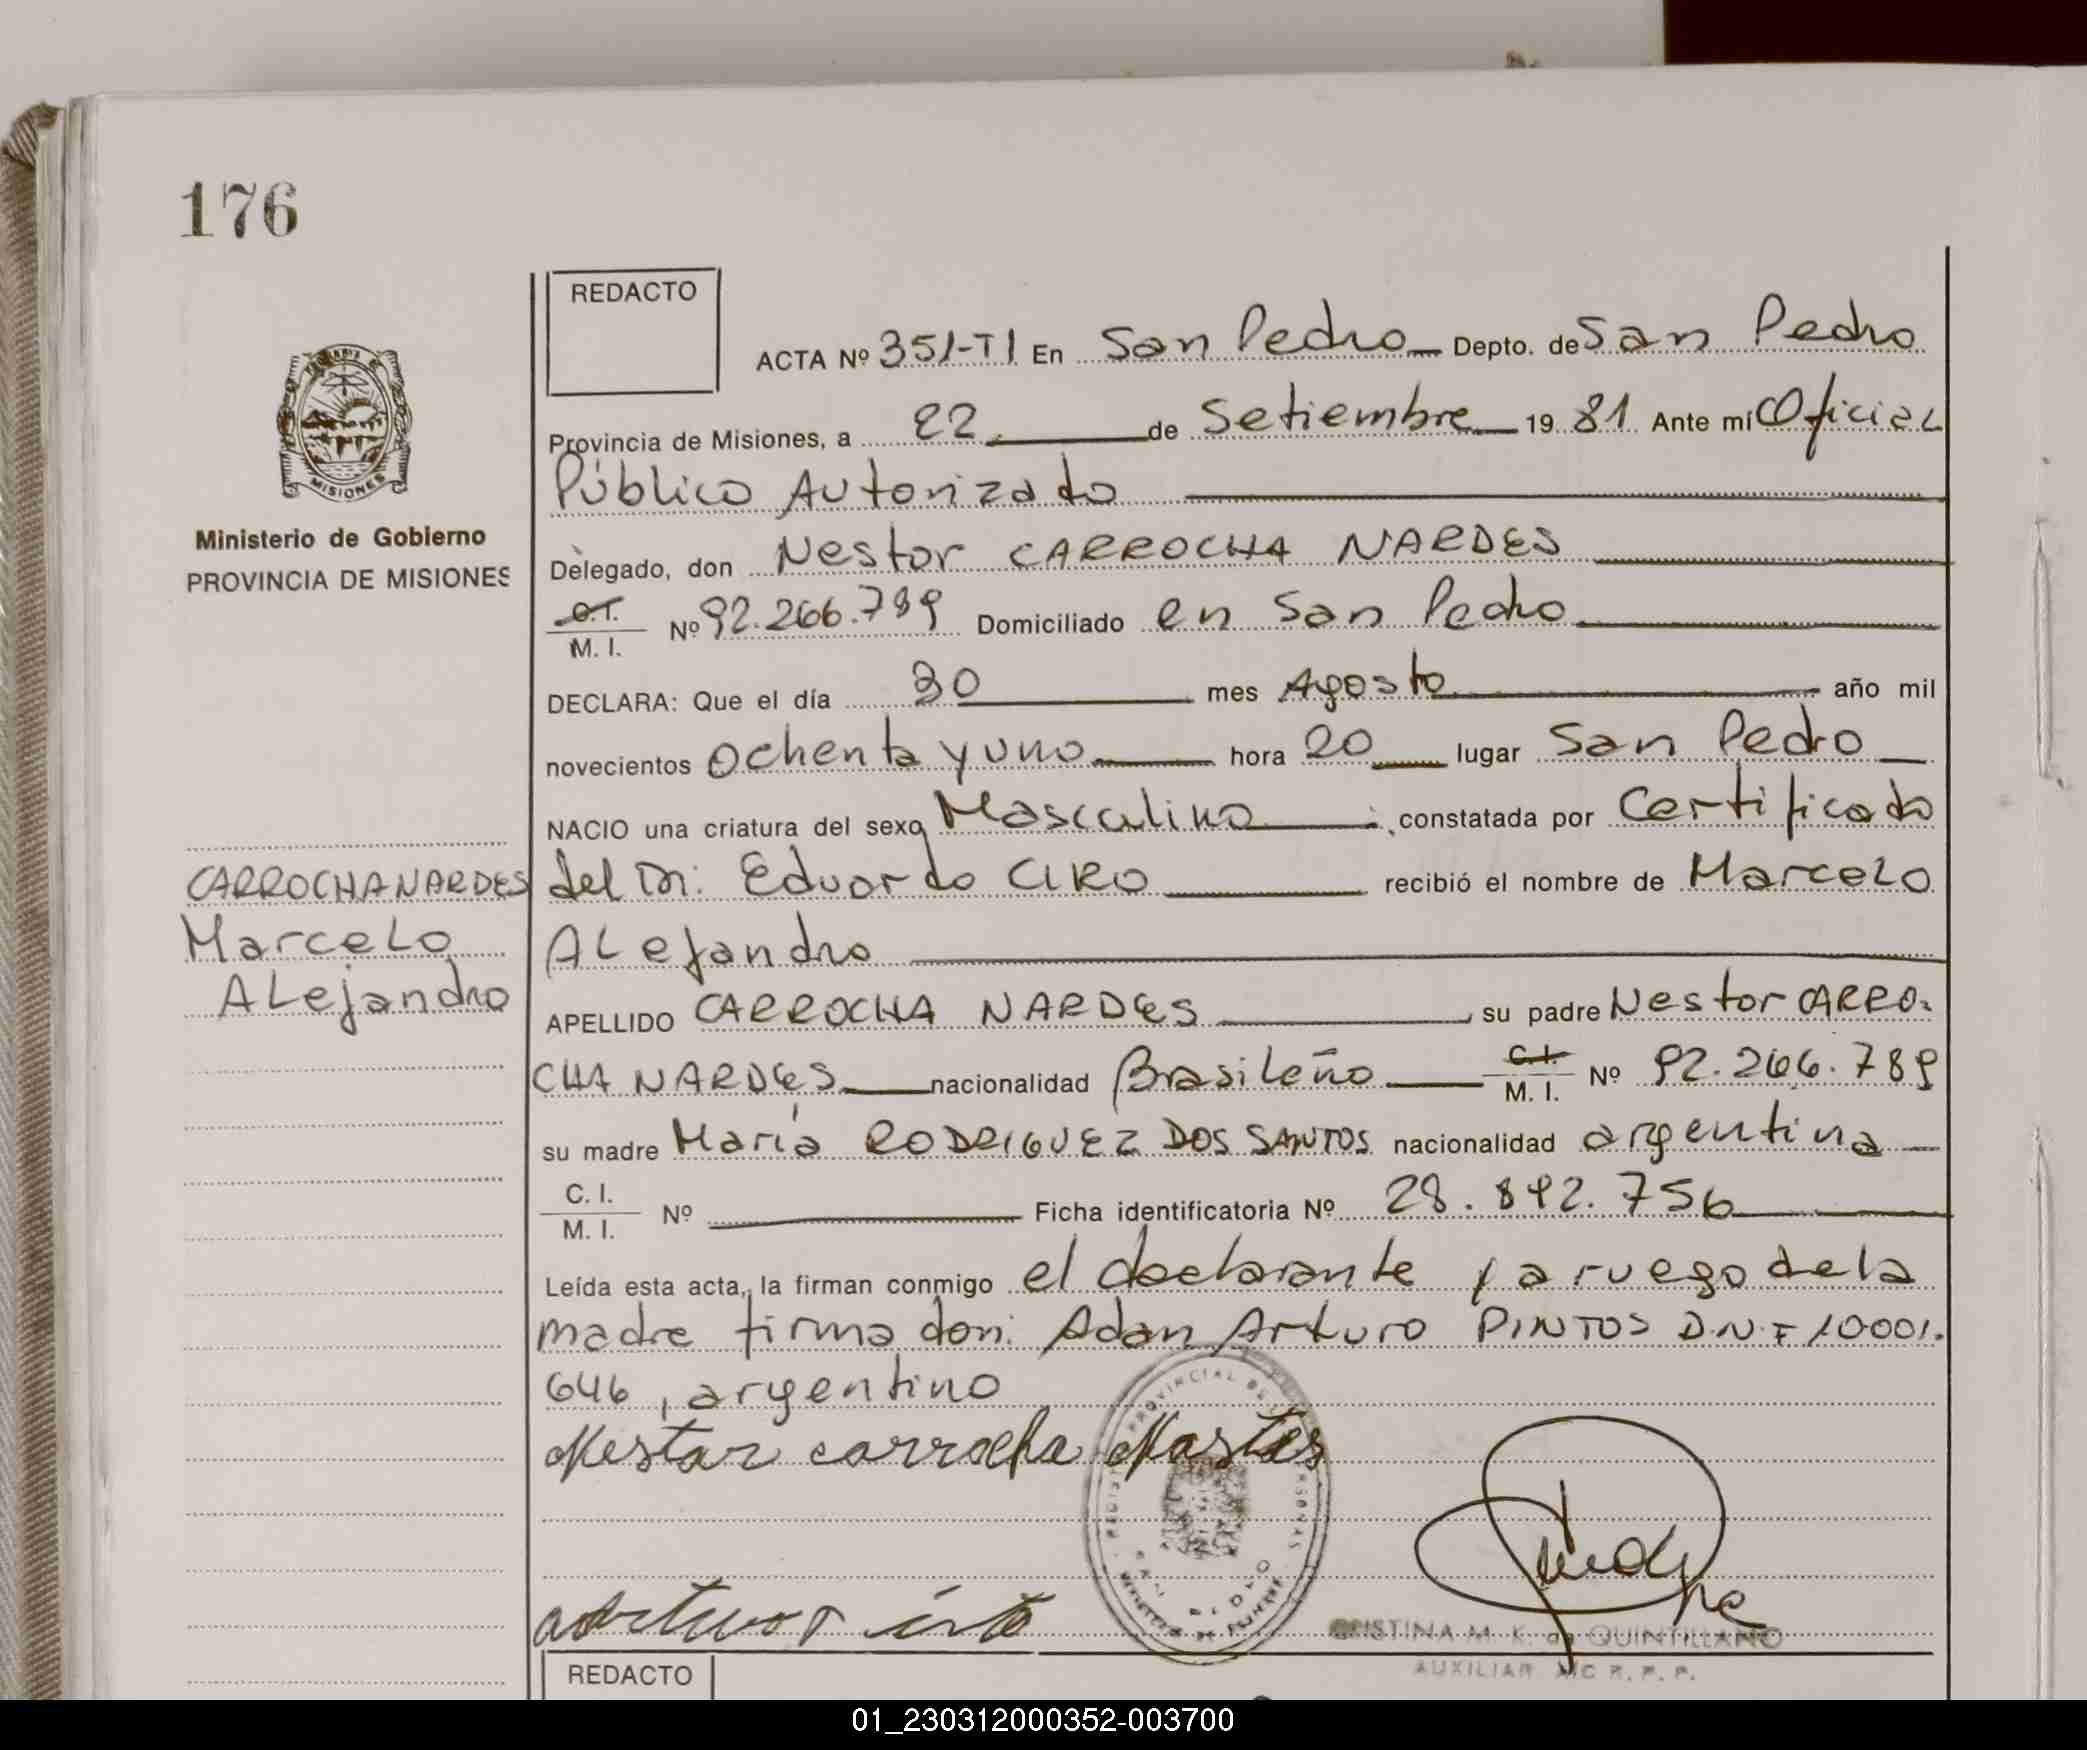 176
REDACTO
ACTA Nº 351-T1 En San Pedro Depto. de San Pedro
Provincia de Misiones, a 22 de Setiembre 19 81 Ante mí Oficial
Público Autorizado
MISIONES
Ministerio de Gobierno
PROVINCIA DE MISIONES
Delegado, don Nestor CARROCHA NARDES
C.I. M. I. Nº 92.266.789 Domiciliado en San Pedro
DECLARA: Que el día 30 mes Agosto año mil
novecientos Ochenta y uno hora 20 lugar San Pedro
NACIO una criatura del sexo Masculino constatada por Certificado
del Dr: Eduardo CIRO recibió el nombre de Marcelo
Alejandro
CARROCHA NARDES
Marcelo
Alejandro
APELLIDO CARROCHA NARDES su padre Nestor CARRO-
CHA NARDES nacionalidad Brasileño C.I. M. I. Nº 92.266.789
su madre María RODRIGUEZ DOS SANTOS nacionalidad argentina
C. I. M. I. Nº Ficha identificatoria Nº 28.892.756
Leída esta acta, la firman conmigo el declarante y a ruego de la
madre firma don: Adan Arturo PINTOS D.N.I 10001.
646, argentino
Nestar carrocha Nastes
CRISTINA M. K. de QUINTILLANO
AUXILIAR A/C R. P. P.
REDACTO
01_230312000352-003700